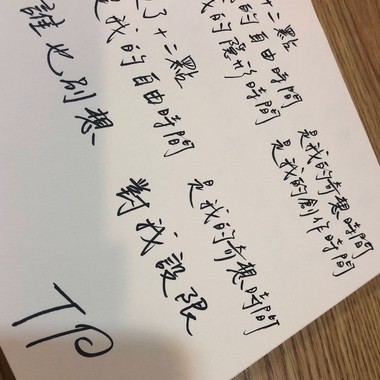 十二點
的自由時間
我的隱形時間
是我的奇想時間
是我的創作時間
了十二點
是我的自由時間
是我的奇想時間
誰也別想
對我設限
TP